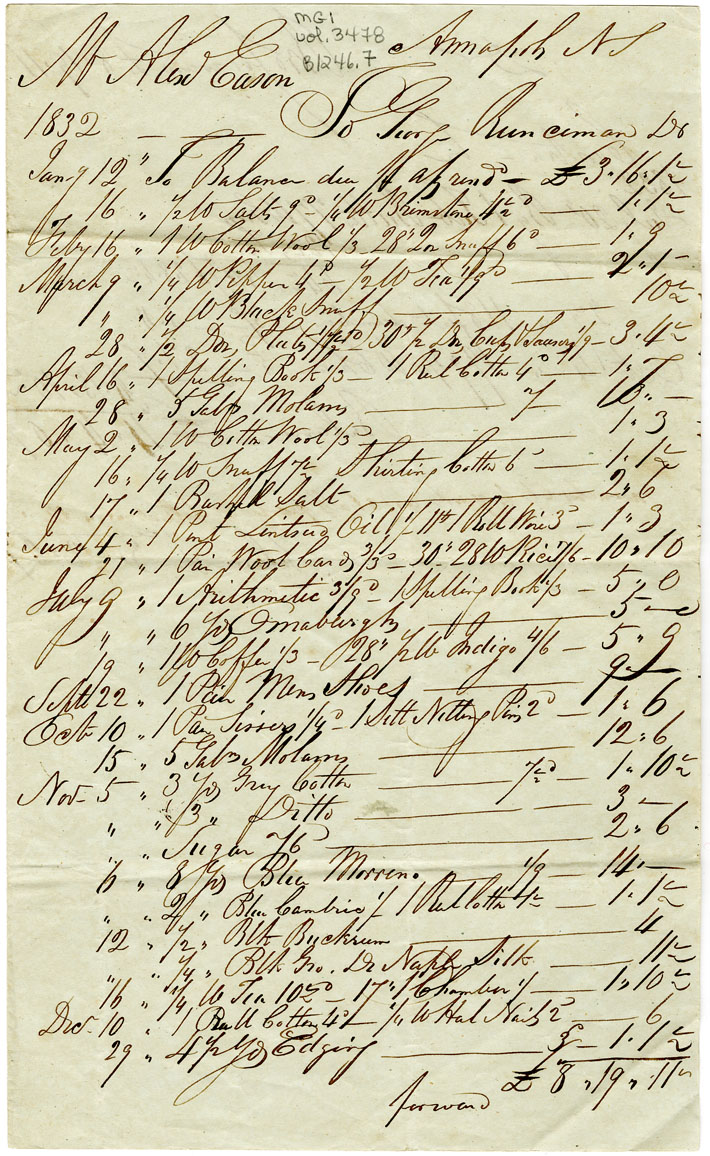 MG1
vol. 3478
B1246.7
Annapolis NS
Mr Alexr Eason
To George Runciman Dr
1832
Jany 12 " To Balance due — £3 " 16 " 1½
16 " ½ lb Salts 9d ¼ lb Brimstone 4½d — 1 " 1½
Feby 16 " 1 lb Cotton Wool 1/3 28" Snuff 6d — 1 " 9
March 9 " ¼ lb Pepper 4d — ½ lb Tea 1/9d — 2 " 1
" " ¼ lb Black Snuff — 10½
28 " ½ Doz Plates — 30" ½ Dn Cups & Saucers 1/9 — 3 " 4½
April 16 " 1 Spelling Book 1/3 — 1 Reel Cotton 4d — 1 " 7
28 " 5 Gals Molasses —
May 2 " 1 lb Cotton Wool 1/3 — 1 " 3
16 " ¼ lb Snuff 7½ Shirting Cotton 6d — 1 " 1½
17 " 1 Barrel Salt — 2 " 6
June 4 " 1 Pint Lintseed Oil 1/ 11th 1 Roll Wire 3d — 1 " 3
21 " 1 Pair Wool Cards 3/3d — 30" 28 lb Rice 7/6 — 10 " 10
July 9 " 1 Arithmetic 3/9d — 1 Spelling Book 1/3 — 5 " 0
" " 6 Yds Osnaburghs — 5 —
19 " 1 lb Coffee 1/3 — 28" ½ lb Indigo 4/6 — 5 " 9
Septr 22 " 1 Pair Mens Shoes — 9 —
Octr 10 " 1 Pair Sissers 1/4d — 1 Sett Nitting Pins 2d — 1 " 6
15 " 5 Gals Molasses — 12 " 6
Nov 5 " 3 Yds Grey Cotton — 7½d — 1 " 10½
" " 3 " Ditto — 3 —
" " Sugar 2/6 — 2 " 6
6 " 8 Yds Blue Morreno 1/9 — 14 " —
" " 2 " Blue Cambric 1/ 1 Reel Cotton 4½ — 1 " 1½
12 " ½ " Blk Buckrum — 4
" " ¼ " Blk Gro. De Naple Silk — 11½
16 " ¼ lb Tea 10½d — 17" 1 Chamber 1/ — 1 " 10½
Decr 10 " 1 Reel Cotton 4d — ¼ lb Hal Nails 2d — 6
29 " 4½ Yds Edging — 3 — 1 " 1½
£8 " 19 " 11½
forward